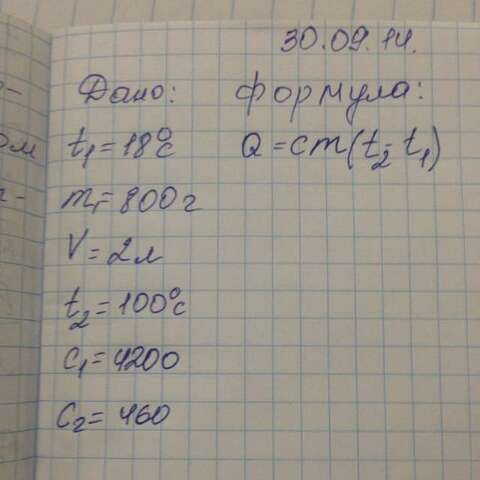 30.09.14.
Дано: формула:
t₁=18°с Q=cm(t₂-t₁)
m₁=800г
V=2л
t₂=100°с
c₁=4200
c₂=460